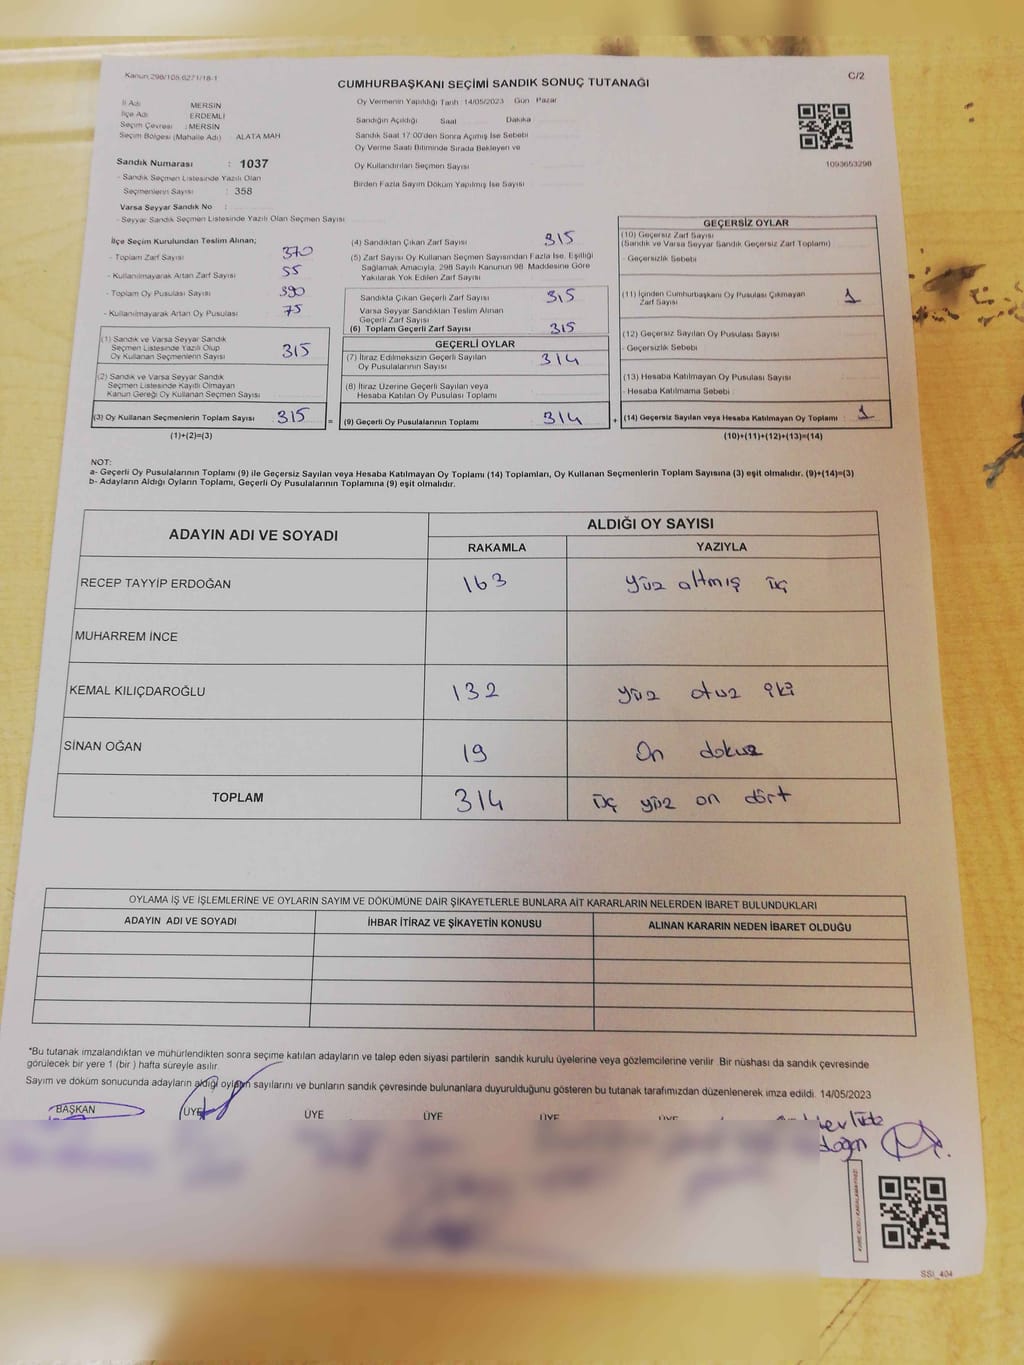 Kanun 298/105,6271/18-1
C/2
CUMHURBAŞKANI SEÇİMİ SANDIK SONUÇ TUTANAĞI
İl Adı MERSİN
İlçe Adı ERDEMLİ
Seçim Çevresi : MERSİN
Seçim Bölgesi (Mahalle Adı) : ALATA MAH
Oy Vermenin Yapıldığı Tarih : 14/05/2023 Gün Pazar
Sandığın Açıldığı Saat Dakika
Sandık Saat 17:00'den Sonra Açımış İse Sebebi
Oy Verme Saati Bitiminde Sırada Bekleyen ve
Oy Kullandırılan Seçmen Sayısı
Birden Fazla Sayım Döküm Yapılmış İse Sayısı
1093653298
Sandık Numarası : 1037
- Sandık Seçmen Listesinde Yazılı Olan
Seçmenlerin Sayısı : 358
Varsa Seyyar Sandık No :
- Seyyar Sandık Seçmen Listesinde Yazılı Olan Seçmen Sayısı
İlçe Seçim Kurulundan Teslim Alınan;
- Toplam Zarf Sayısı 370
- Kullanılmayarak Artan Zarf Sayısı 55
- Toplam Oy Pusulası Sayısı 390
- Kullanılmayarak Artan Oy Pusulası 75
(1) Sandık ve Varsa Seyyar Sandık
Seçmen Listesinde Yazılı Olup
Oy Kullanan Seçmenlerin Sayısı 315
(2) Sandık ve Varsa Seyyar Sandık
Seçmen Listesinde Kayıtlı Olmayan
Kanun Gereği Oy Kullanan Seçmen Sayısı
(3) Oy Kullanan Seçmenlerin Toplam Sayısı 315
(1)+(2)=(3)
(4) Sandıktan Çıkan Zarf Sayısı 315
(5) Zarf Sayısı Oy Kullanan Seçmen Sayısından Fazla İse, Eşitliği
Sağlamak Amacıyla, 298 Sayılı Kanunun 98. Maddesine Göre
Yakılarak Yok Edilen Zarf Sayısı
Sandıkta Çıkan Geçerli Zarf Sayısı 315
Varsa Seyyar Sandıktan Teslim Alınan
Geçerli Zarf Sayısı
(6) Toplam Geçerli Zarf Sayısı 315
GEÇERLİ OYLAR
(7) İtiraz Edilmeksizin Geçerli Sayılan
Oy Pusulalarının Sayısı 314
(8) İtiraz Üzerine Geçerli Sayılan veya
Hesaba Katılan Oy Pusulası Toplamı
= (9) Geçerli Oy Pusulalarının Toplamı 314
GEÇERSİZ OYLAR
(10) Geçersiz Zarf Sayısı
(Sandık ve Varsa Seyyar Sandık Geçersiz Zarf Toplamı)
- Geçersizlik Sebebi
(11) İçinden Cumhurbaşkanı Oy Pusulası Çıkmayan
Zarf Sayısı 1
(12) Geçersiz Sayılan Oy Pusulası Sayısı
- Geçersizlik Sebebi
(13) Hesaba Katılmayan Oy Pusulası Sayısı
- Hesaba Katılmama Sebebi
+ (14) Geçersiz Sayılan veya Hesaba Katılmayan Oy Toplamı : 1
(10)+(11)+(12)+(13)=(14)
NOT:
a- Geçerli Oy Pusulalarının Toplamı (9) ile Geçersiz Sayılan veya Hesaba Katılmayan Oy Toplamı (14) Toplamları, Oy Kullanan Seçmenlerin Toplam Sayısına (3) eşit olmalıdır. (9)+(14)=(3)
b- Adayların Aldığı Oyların Toplamı, Geçerli Oy Pusulalarının Toplamına (9) eşit olmalıdır.
ADAYIN ADI VE SOYADI
ALDIĞI OY SAYISI
RAKAMLA YAZIYLA
RECEP TAYYİP ERDOĞAN 163 yüz altmış üç
MUHARREM İNCE
KEMAL KILIÇDAROĞLU 132 yüz otuz iki
SİNAN OĞAN 19 On dokuz
TOPLAM 314 üç yüz on dört
OYLAMA İŞ VE İŞLEMLERİNE VE OYLARIN SAYIM VE DÖKÜMÜNE DAİR ŞİKAYETLERLE BUNLARA AİT KARARLARIN NELERDEN İBARET BULUNDUKLARI
ADAYIN ADI VE SOYADI İHBAR İTİRAZ VE ŞİKAYETİN KONUSU ALINAN KARARIN NEDEN İBARET OLDUĞU
"Bu tutanak imzalandıktan ve mühürlendikten sonra seçime katılan adayların ve talep eden siyasi partilerin sandık kurulu üyelerine veya gözlemcilerine verilir. Bir nüshası da sandık çevresinde
görülecek bir yere 1 (bir ) hafta süreyle asılır.
Sayım ve döküm sonucunda adayların aldığı oyların sayılarını ve bunların sandık çevresinde bulunanlara duyurulduğunu gösteren bu tutanak tarafımızdan düzenlenerek imza edildi. 14/05/2023
BAŞKAN ÜYE ÜYE ÜYE ÜYE ÜYE
SSI_404